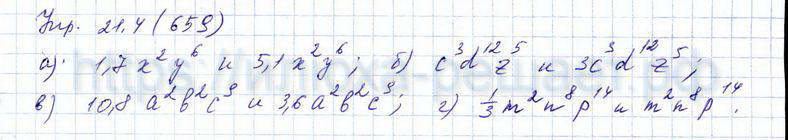 Упр. 21.4 (659)
а) 1,7 x²y⁶ и 5,1 x²y⁶; б) c³d¹²z⁵ и 3c³d¹²z⁵;
в) 10,8 a²b²c⁹ и 3,6 a²b²c⁹; г) ⅓ m²n⁸p¹⁴ и m²n⁸p¹⁴.